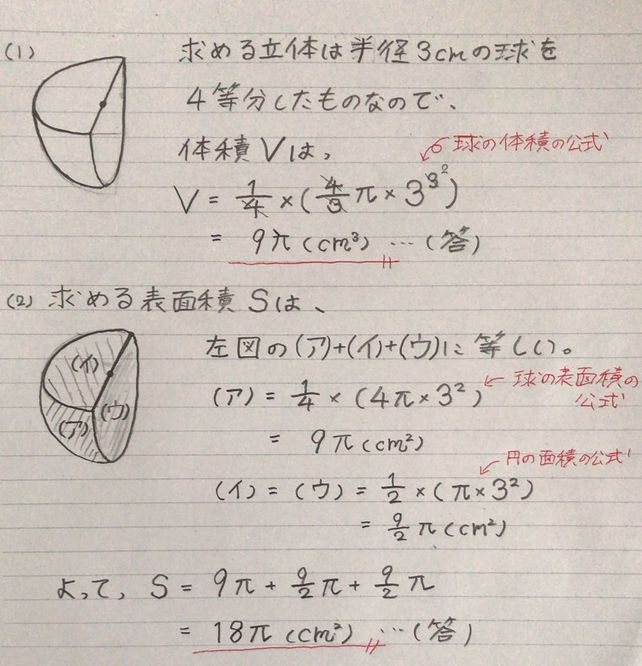 (1) 求める立体は半径3cmの球を
4等分したものなので、
体積Vは、
球の体積の公式
V = 1/4 × (4/3 π × 3^3 2)
= 9π (cm³) …(答)
(2) 求める表面積Sは、
左図の(ア)+(イ)+(ウ)に等しい。
(イ)
(ウ)
(ア)
(ア) = 1/4 × (4π × 3²)
球の表面積の
公式
= 9π (cm²)
円の面積の公式
(イ) = (ウ) = 1/2 × (π × 3²)
= 9/2 π (cm²)
よって, S = 9π + 9/2 π + 9/2 π
= 18π (cm²) …(答)